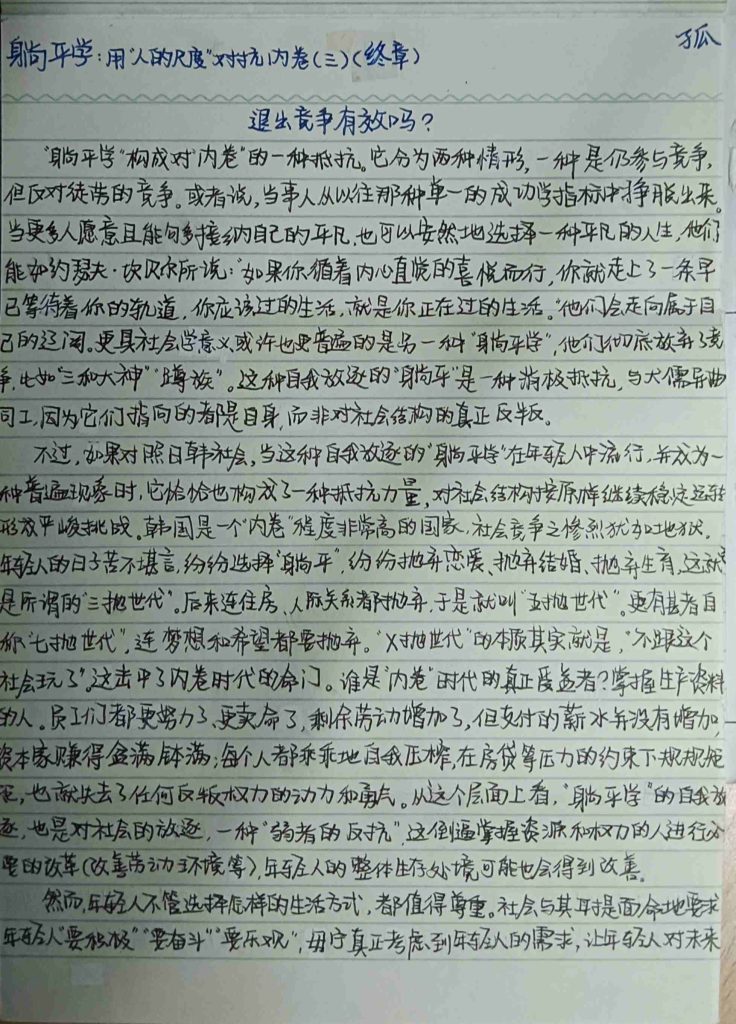 孤
躺平学：用“人的尺度”对抗内卷（三）（终章）
退出竞争有效吗？
“躺平学”构成对“内卷”的一种抵抗。它分为两种情形，一种是仍参与竞争，
但反对徒劳的竞争。或者说，当事人从以往那种单一的成功学指标中挣脱出来。
当更多人愿意且能够多接纳自己的平凡，也可以安然地选择一种平凡的人生，他们
能如约瑟夫·坎贝尔所说：“如果你循着内心直觉的喜悦而行，你就走上了一条早
已等待着你的轨道，你应该过的生活，就是你正在过的生活。”他们会走向属于自
己的辽阔。更具社会学意义或许也更普遍的是另一种“躺平学”，他们彻底放弃了竞
争，比如“三和大神”“蹲族”。这种自我放逐的“躺平”是一种消极抵抗，与犬儒异曲
同工，因为它们指向的都是自身，而非对社会结构的真正反叛。
不过，如果对照日韩社会，当这种自我放逐的“躺平学”在年轻人中流行，并成为一
种普遍现象时，它恰恰也构成了一种抵抗力量，对社会结构按原样继续稳定运转
形成严峻挑战。韩国是一个“内卷”程度非常高的国家，社会竞争之惨烈犹如地狱。
年轻人的日子苦不堪言，纷纷选择“躺平”，纷纷抛弃恋爱、抛弃结婚、抛弃生育，这就
是所谓的“三抛世代”。后来连住房、人际关系都抛弃，于是就叫“五抛世代”。更有甚者自
称“七抛世代”，连梦想和希望都要抛弃。“X抛世代”的本质其实就是，“不跟这个
社会玩了”。这击中了内卷时代的命门。谁是“内卷”时代的真正受益者？掌握生产资料
的人。员工们都更努力了，更卖命了，剩余劳动增加了，但支付的薪水并没有增加，
资本家赚得盆满钵满；每个人都乖乖地自我压榨，在房贷等压力的约束下规规矩
矩，也就失去了任何反叛权力的动力和勇气。从这个层面上看，“躺平学”的自我放
逐，也是对社会的放逐，一种“弱者的反抗”，这倒逼掌握资源和权力的人进行必
要的改革（改善劳动环境等），年轻人的整体生存处境可能也会得到改善。
然而，年轻人不管选择怎样的生活方式，都值得尊重。社会与其耳提面命地要求
年轻人“要积极”“要奋斗”“要乐观”，毋宁真正考虑到年轻人的需求，让年轻人对未来